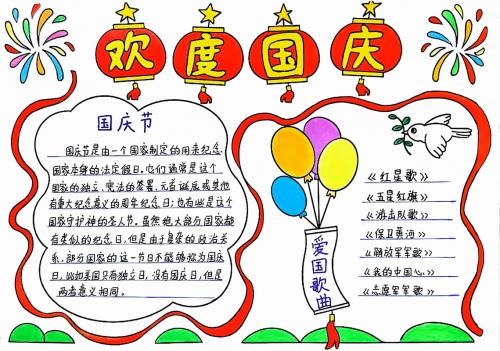 欢度国庆
国庆节
国庆节是由一个国家制定的用来纪念
国家本身的法定假日。它们通常是这个
国家的独立、宪法的签署、元首诞辰或其他
有重大纪念意义的周年纪念日；也有些是这个
国家守护神的圣人节。虽然绝大部分国家都
有类似的纪念日，但是由于复杂的政治关
系，部分国家的这一节日不能够称为国庆
日，比如美国只有独立日，没有国庆日，但是
两者意义相同。
爱国歌曲
《红星歌》
《五星红旗》
《游击队歌》
《保卫黄河》
《解放军军歌》
《我的中国心》
《志愿军军歌》